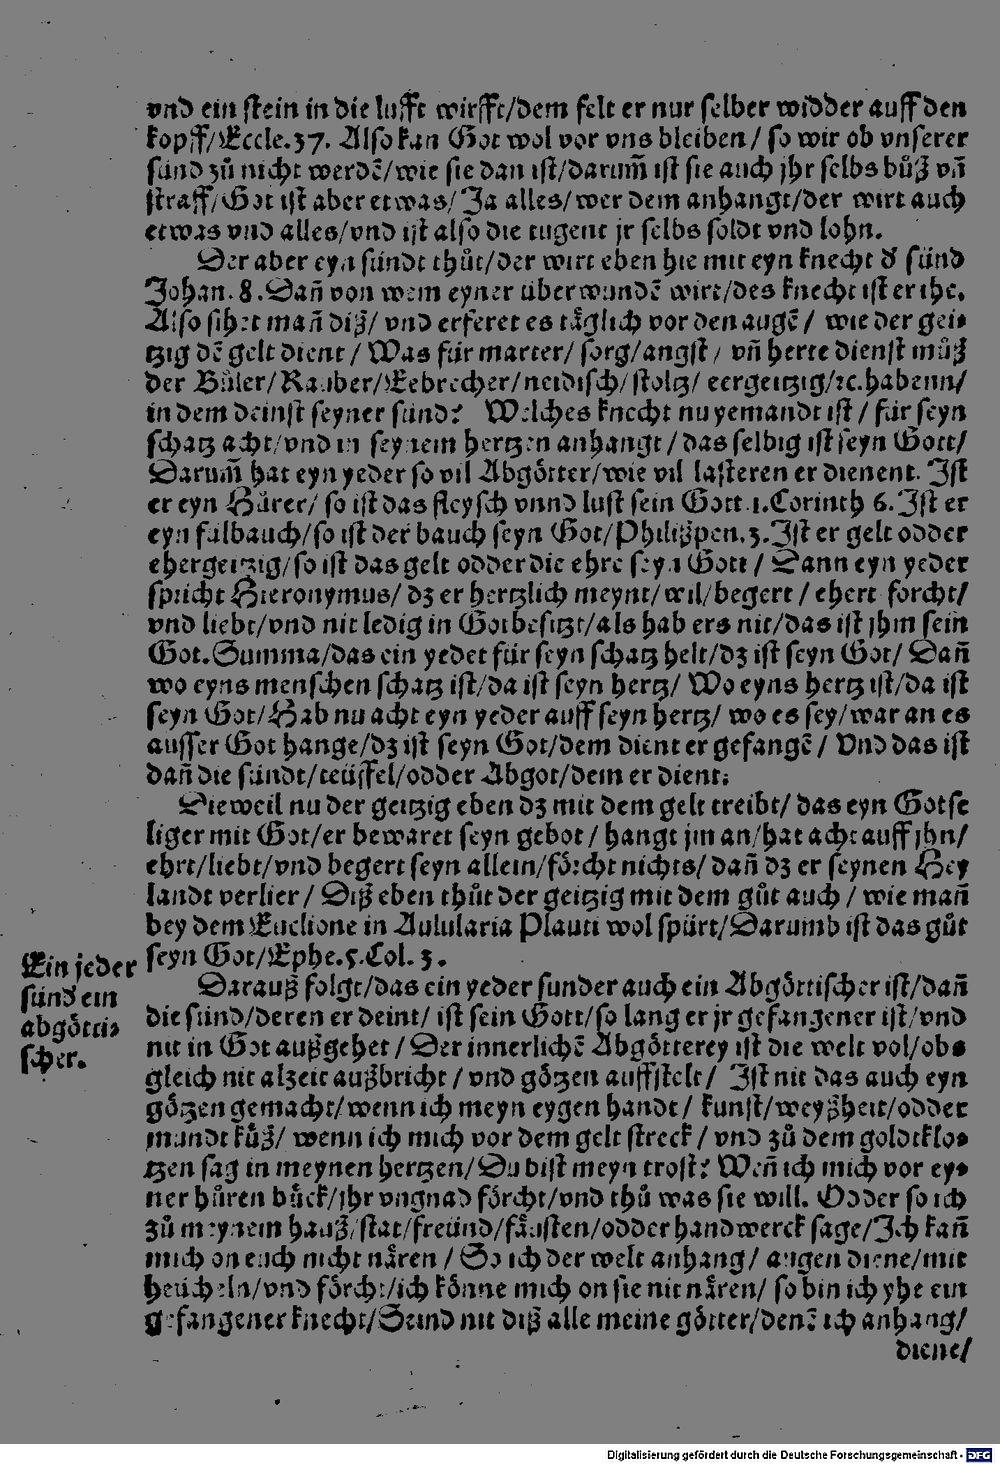 vnd ein stein in die lufft wirfft/dem felt er nur selber widder auff den
kopff/Eccle.37. Also kan Got wol vor vns bleiben / so wir ob vnserer
sünd zů nicht werdē/wie sie dan ist/darum̄ ist sie auch jhr selbs bůß vn̄
straff/Got ist aber etwas/ Ja alles/wer dem anhangt/der wirt auch
etwas vnd alles/vnd ist also die tugent jr selbs soldt vnd lohn.
Der aber eyn sündt thůt/der wirt eben hie mit eyn knecht d̕ sünd
Johan.8.Dan̄ von wem eyner überwundē wirt/des knecht ist er ihe.
Also sihet man̄ diß/ vnd erferet es täglich vor den augē / wie der gei-
tzig dē gelt dient / Was für marter/ sorg/angst / vn̄ herte dienst můß
der Bůler/Rauber/Eebrecher/neidisch/stoltz/ eergeitzig/ꝛc.habenn/
in dem deinst seyner sünd? Welches knecht nu yemandt ist / für seyn
schatz acht/vnd in seynem hertzen anhangt / das selbig ist seyn Gott/
Darum̄ hat eyn yeder so vil Abgötter/wie vil lasteren er dienent. Ist
er eyn Hůrer/ so ist das fleysch vnnd lust sein Gott.1.Corinth 6.Ist er
eyn fülbauch/so ist der bauch seyn Got/Philippen.3.Ist er gelt odder
ehergeitzig/so ist das gelt odder die ehre seyn Gott / Dann eyn yeder
spricht Hieronymus/ dz er hertzlich meynt/wil/begert / ehert forcht/
vnd liebt/vnd nit ledig in Got besitzt/als hab ers nit/das ist jhm sein
Got.Summa/das ein yeder für seyn schatz helt/dz ist seyn Got/ Dan̄
wo eyns menschen schatz ist/da ist seyn hertz/ Wo eyns hertz ist/da ist
seyn Got/Hab nu acht eyn yeder auff seyn hertz/ wo es sey/war an es
ausser Got hange/dz ist seyn Got/dem dient er gefangē / Vnd das ist
dan̄ die sündt/teüffel/odder Abgot/dem er dient.
Dieweil nu der geitzig eben dz mit dem gelt treibt/ das eyn Gotse
liger mit Got/er bewaret seyn gebot / hangt jm an/hat acht auff jhn/
ehrt/liebt/vnd begert seyn allein/förcht nichts/ dan̄ dz er seynen Hey
landt verlier / Diß eben thůt der geitzig mit dem gůt auch / wie man̄
bey dem Euclione in Aulularia Plauti wol spürt/Darumb ist das gůt
seyn Got/Ephe.5.Col. 3.
Ein jeder
sünd ein
abgötti-
scher.
Darauß folgt/das ein yeder sunder auch ein Abgöttischer ist/dan̄
die sünd/deren er deint/ ist sein Gott/so lang er jr gefangener ist/vnd
nit in Got außgehet / Der innerlichē Abgötterey ist die welt vol/obs
gleich nit alzeit außbricht / vnd götzen auffstelt / Ist nit das auch eyn
götzen gemacht/wenn ich meyn eygen handt / kunst/weyßheit/odder
mundt küß/ wenn ich mich vor dem gelt streck / vnd zů dem goldtklo-
tzen sag in meynen hertzen/Du bist meyn trost? Wen̄ ich mich vor ey-
ner hůren bück/jhr vngnad förcht/vnd thů was sie will. Odder so ich
zů meynem hauß/stat/freünd/fürsten/odder handwerck sage/Ich kan̄
mich on euch nicht nären / So ich der welt anhang/ augen diene/mit
heücheln/vnd förcht/ich könne mich on sie nit nären/ so bin ich yhe ein
gefangener knecht/Seind nit diß alle meine götter/denē ich anhang/
diene/
Digitalisierung gefördert durch die Deutsche Forschungsgemeinschaft - DFG